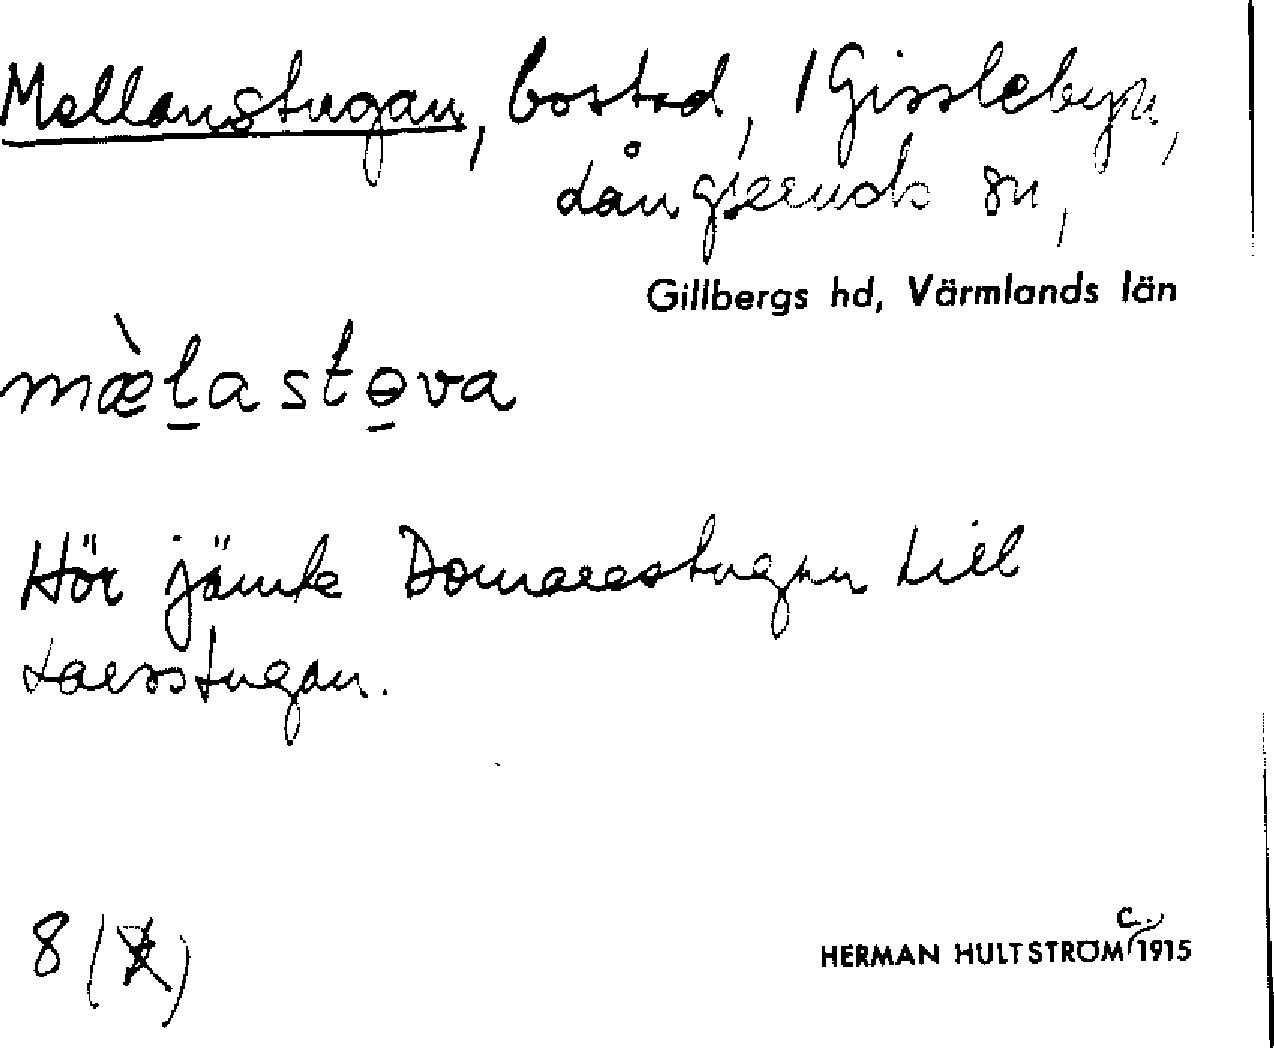 Mellanstugan, bostad, 1 Gisslebyn,
Långseruds sn,
Gillbergs hd, Värmlands län
mæ̀l̠astɵ̠va
Hör jämte Domarestugan till
Larsstugan.
8 (
c.
HERMAN HULTSTRÖM 1915